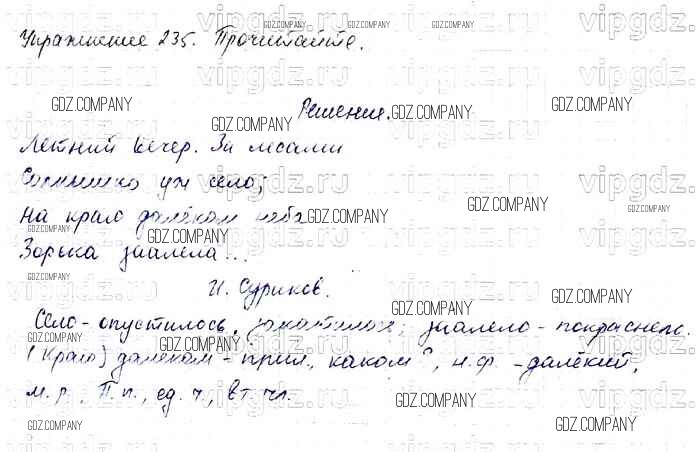 Упражнение 235. Прочитайте.
Решение.
Летний вечер. За лесами
Солнышко уж село;
На краю далёком неба
Зорька заалела...
И. Суриков.
Село - опустилось, закатилось; заалело - покраснело.
(Краю) далёком - прил., каком?, н.ф. - далёкий,
м.р., П.п., ед.ч., вт. чл.
vipgdz.ru
GDZ.COMPANY